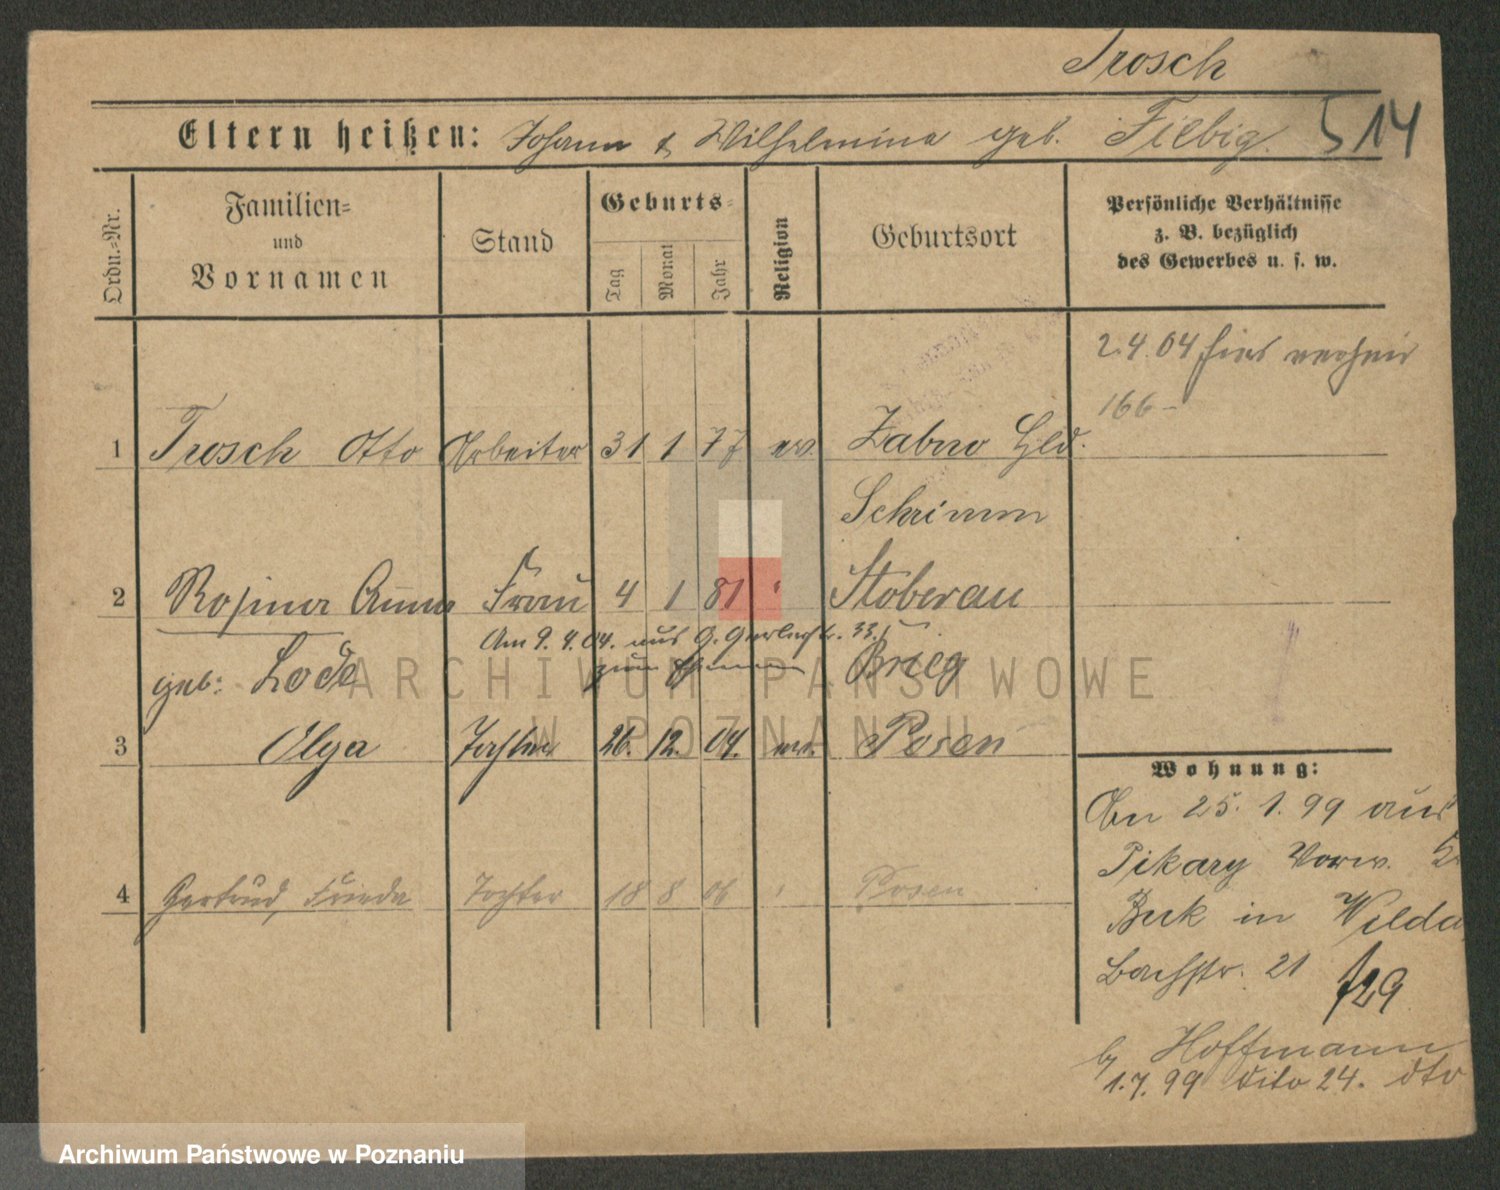 Trosch
Eltern heißen: Johann & Wilhelmina geb. Fiebig. 514
Ordn.-Nr.
Familien-
und
Vornamen
Stand
Geburts-
Tag
Monat
Jahr
Religion
Geburtsort
Persönliche Verhältnisse
z. B. bezüglich
des Gewerbes u. s. w.
2.4.04 hier verheir
166-
1 Trosch Otto Arbeiter 31 1 77 ev. Zabno Hld.
Schrimm
2 Rosina Anna Frau 4 1 81 " Stoberau
Am 9.4.04. aus G. Gerberstr. 33.
geb: Lode zum Ehemann Brieg
3 Olga Tochter 26. 12. 04. ev. Posen
4 Gertrud, Frieda Tochter 18 8 06 " Posen
Wohnung:
An 25. 1. 99 aus
Pikary Vorw.
Buk in Wilda
Bachstr. 21 f29
b/ Hoffmann
1.7.99 dito 24. dto
ARCHIWUM PAŃSTWOWE
W POZNANIU
Archiwum Państwowe w Poznaniu